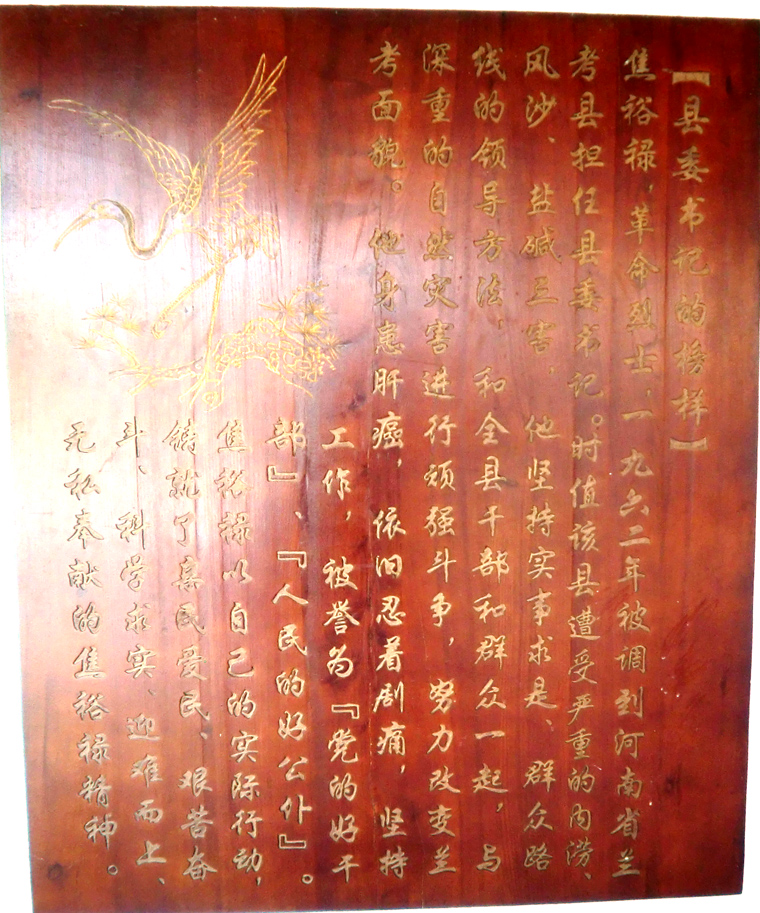 【县委书记的榜样】
焦裕禄，革命烈士，一九六二年被调到河南省兰
考县担任县委书记。时值该县遭受严重的内涝、
风沙、盐碱三害，他坚持实事求是、群众路
线的领导方法，和全县干部和群众一起，与
深重的自然灾害进行顽强斗争，努力改变兰
考面貌。他身患肝癌，依旧忍着剧痛，坚持
工作，被誉为『党的好干
部』、『人民的好公仆』。
焦裕禄以自己的实际行动，
铸就了亲民爱民、艰苦奋
斗、科学求实、迎难而上、
无私奉献的焦裕禄精神。